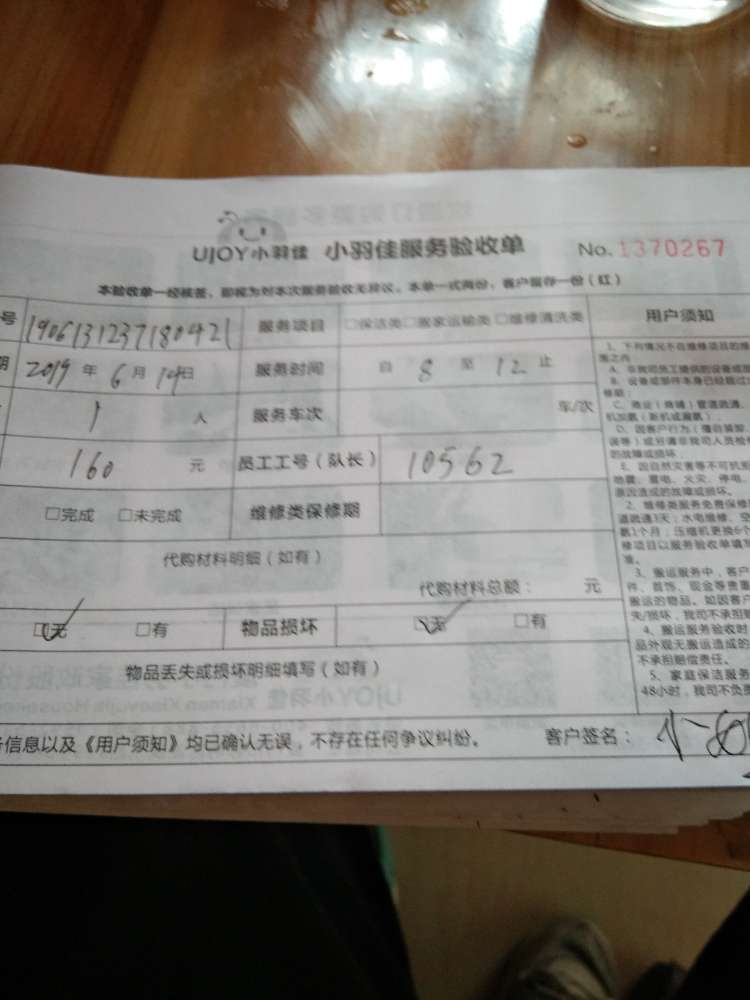 UJOY小羽佳 小羽佳服务验收单 No. 1370267
本验收单一经核签，即视为对本次服务验收无异议。本单一式两份，客户留存一份（红）
号 190613123718042 服务项目 □保洁类□搬家运输类□维修清洗类 用户须知
期 2019 年 6 月 14日 服务时间 自 8 至 12 止
1 人 服务车次 车/次
160 元 员工工号（队长） 10562
□完成 □未完成 维修类保修期
代购材料明细（如有）
代购材料总额： 元
□无 □有 物品损坏 □无 □有
物品丢失或损坏明细填写（如有）
信息以及《用户须知》均已确认无误，不存在任何争议纠纷。 客户签名：
1、下列情况不在维修项目的
围之内
A、非我司员工提供的设备或
B、设备或部件本身已经超过
修期；
C、商业（商铺）管道疏通、
机加氨（新机或漏氨）；
D、因客户行为（擅自装卸、
误等）或另请非我司人员检
的故障或损坏；
E、因自然灾害等不可机
地震、雷电、火灾、停电、
原因造成的故障或损坏。
2、维修类服务免费保修
道疏通3天；水电维修、空
氨1个月；压缩机更换6个
修项目以服务验收单填写
准。
3、搬运服务中，客户
件、首饰、现金等贵重
搬运的物品。如因客户
失/损坏，我司不承担
4、搬运服务验收时
品外观无搬运造成的
不承担赔偿责任。
5、家庭保洁服务
48小时，我司不负责